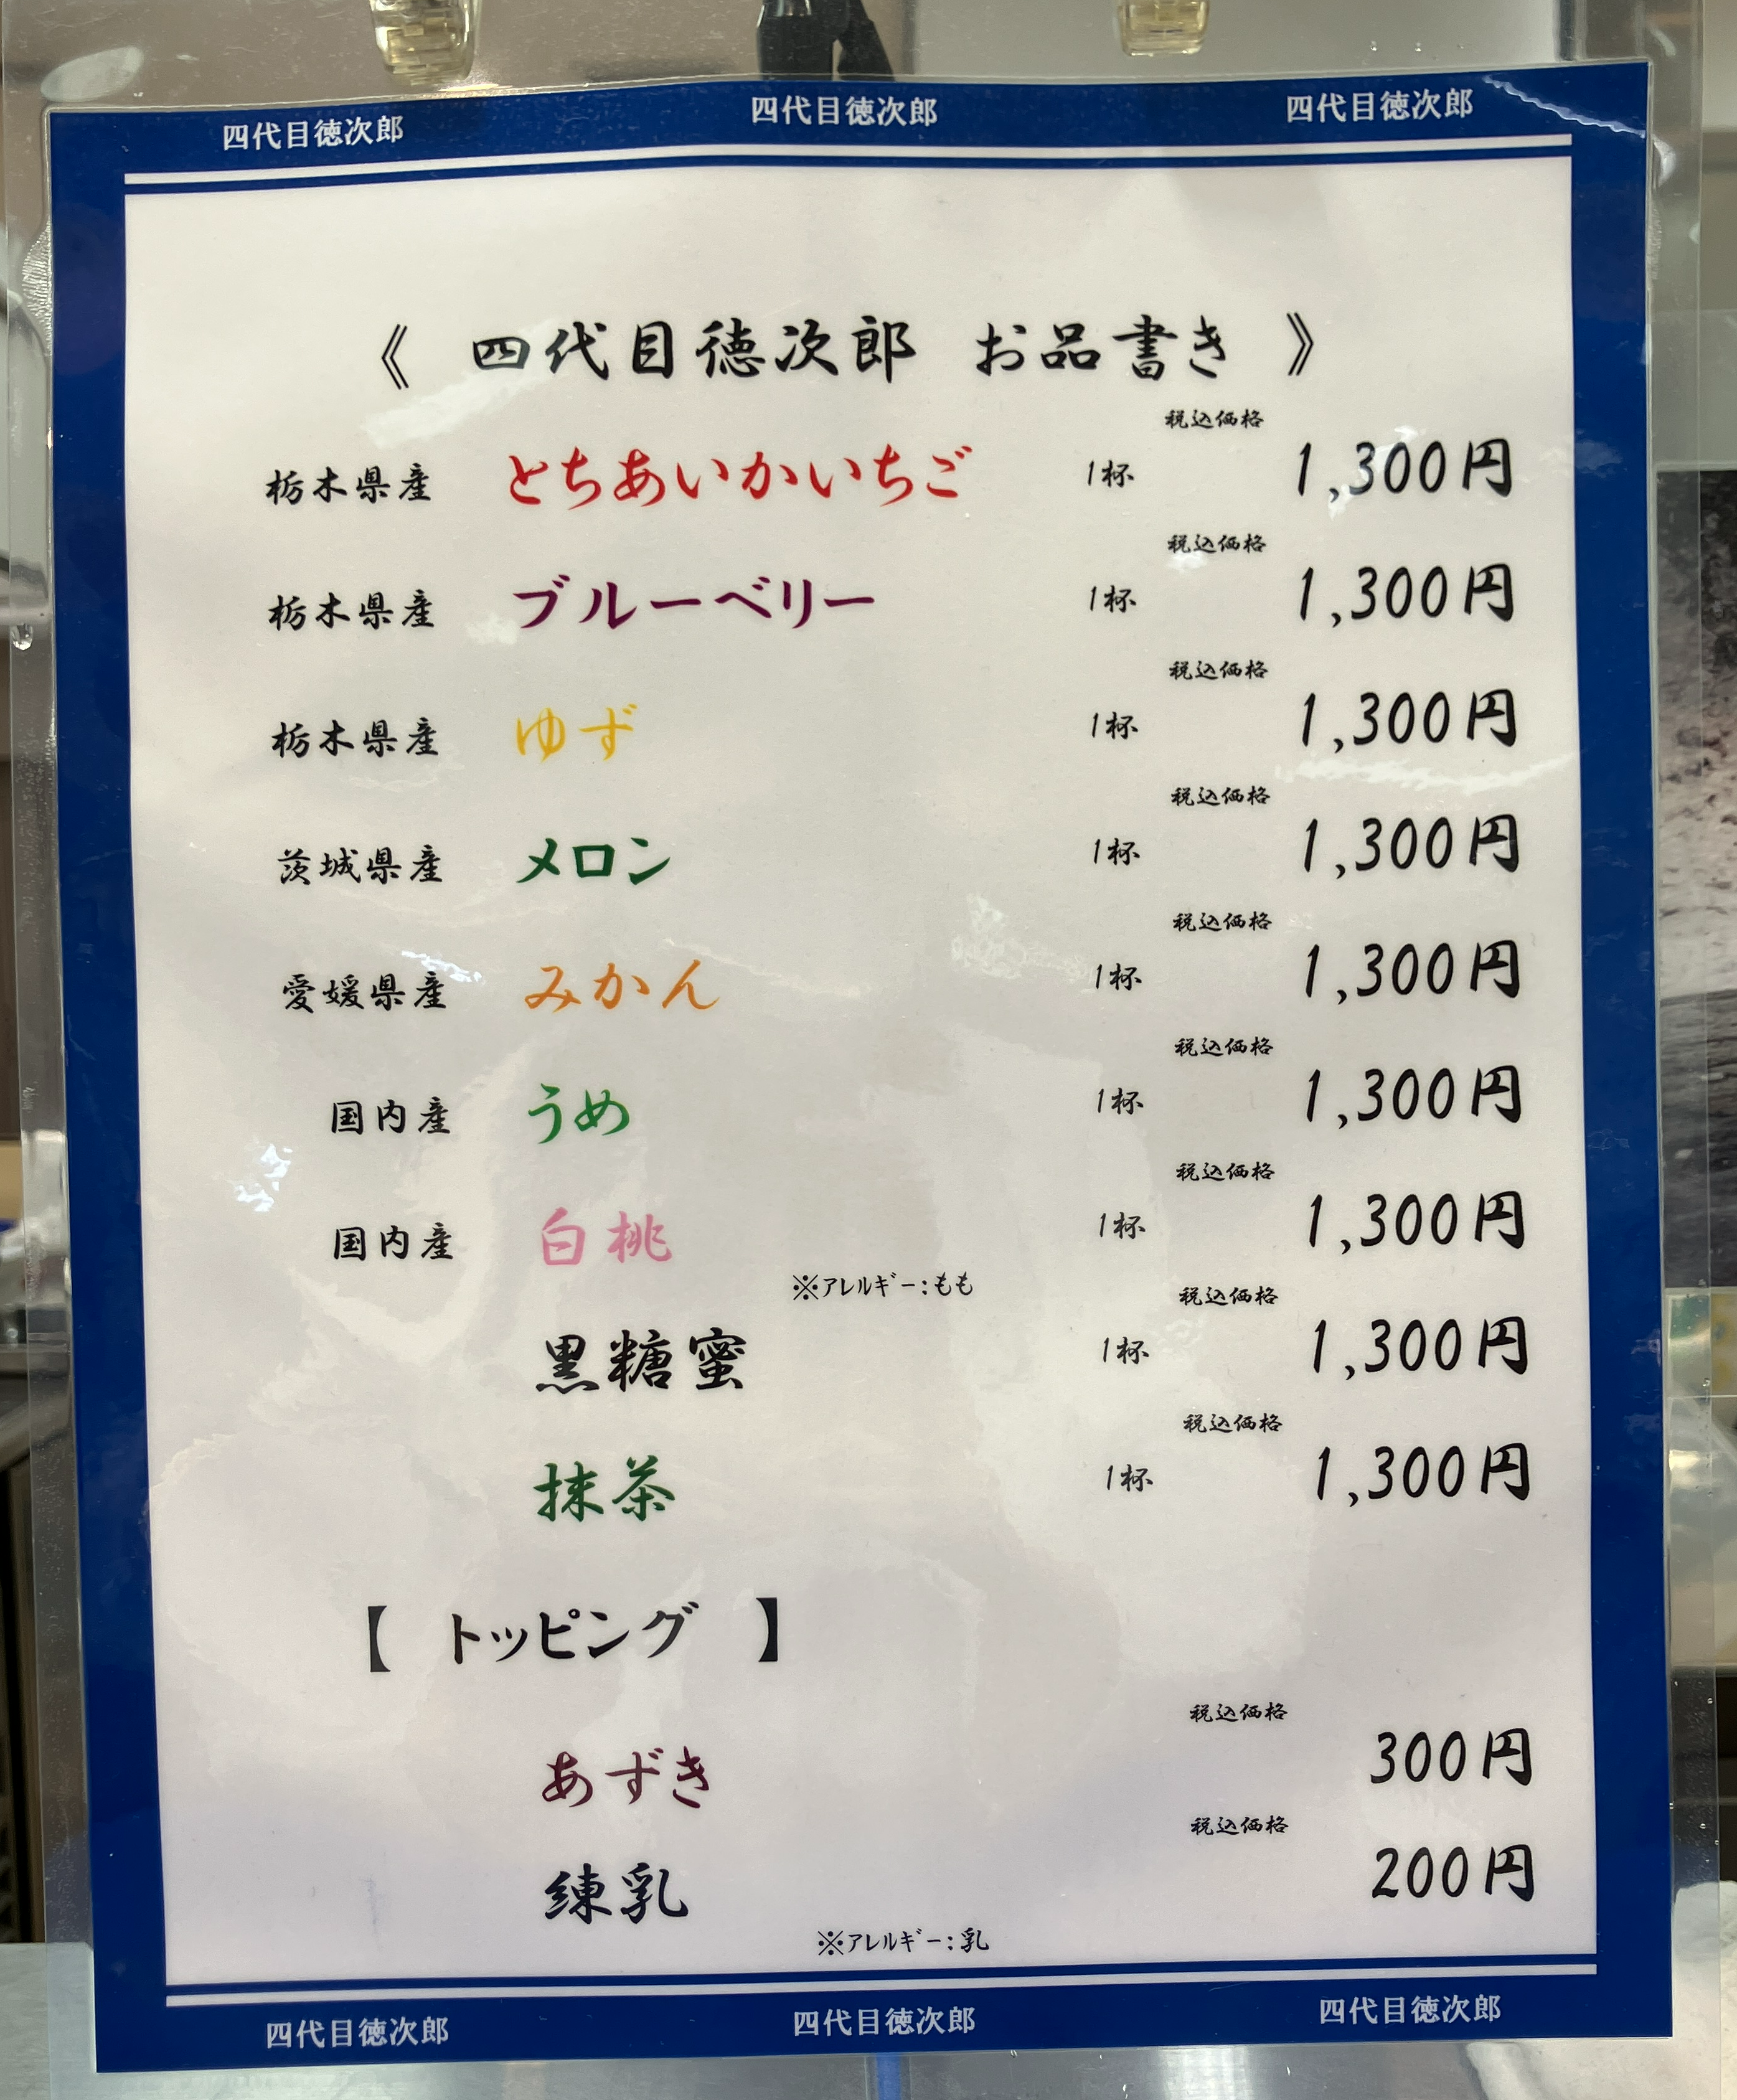 四代目徳次郎 四代目徳次郎 四代目徳次郎
《 四代目徳次郎 お品書き 》
税込価格
栃木県産 とちあいかいちご 1杯 1,300円
税込価格
栃木県産 ブルーベリー 1杯 1,300円
税込価格
栃木県産 ゆず 1杯 1,300円
税込価格
茨城県産 メロン 1杯 1,300円
税込価格
愛媛県産 みかん 1杯 1,300円
税込価格
国内産 うめ 1杯 1,300円
税込価格
国内産 白桃 1杯 1,300円
※アレルギー:もも
税込価格
黒糖蜜 1杯 1,300円
税込価格
抹茶 1杯 1,300円
【 トッピング 】
税込価格
あずき 300円
税込価格
練乳 200円
※アレルギー:乳
四代目徳次郎 四代目徳次郎 四代目徳次郎